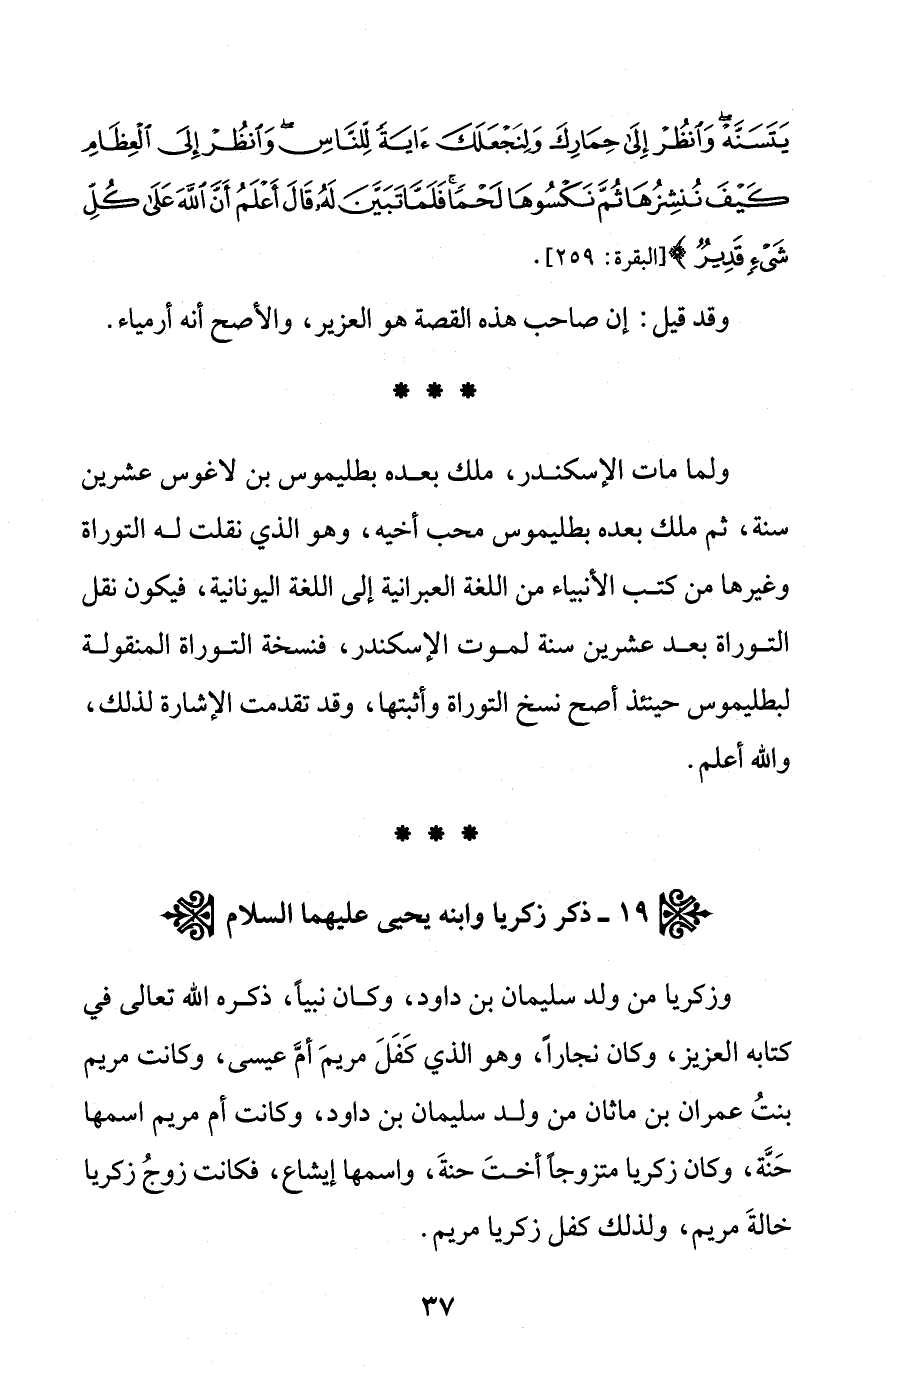 يَتَسَنَّهْ وَٱنظُرْ إِلَىٰ حِمَارِكَ وَلِنَجْعَلَكَ ءَايَةً لِّلنَّاسِ وَٱنظُرْ إِلَى ٱلْعِظَامِ
كَيْفَ نُنشِزُهَا ثُمَّ نَكْسُوهَا لَحْمًا فَلَمَّا تَبَيَّنَ لَهُۥ قَالَ أَعْلَمُ أَنَّ ٱللَّهَ عَلَىٰ كُلِّ
شَىْءٍ قَدِيرٌ ﴾ [البقرة: ٢٥٩].
وقد قيل: إن صاحب هذه القصة هو العزير، والأصح أنه أرمياء.
* * *
ولما مات الإسكندر، ملك بعده بطليموس بن لاغوس عشرين
سنة، ثم ملك بعده بطليموس محب أخيه، وهو الذي نقلت له التوراة
وغيرها من كتب الأنبياء من اللغة العبرانية إلى اللغة اليونانية، فيكون نقل
التوراة بعد عشرين سنة لموت الإسكندر، فنسخة التوراة المنقولة
لبطليموس حينئذ أصح نسخ التوراة وأثبتها، وقد تقدمت الإشارة لذلك،
والله أعلم.
* * *
١٩ - ذكر زكريا وابنه يحيى عليهما السلام
وزكريا من ولد سليمان بن داود، وكان نبياً، ذكره الله تعالى في
كتابه العزيز، وكان نجاراً، وهو الذي كَفَلَ مريمَ أمَّ عيسى، وكانت مريم
بنتُ عمران بن ماثان من ولد سليمان بن داود، وكانت أم مريم اسمها
حَنَّة، وكان زكريا متزوجاً أختَ حنةَ، واسمها إيشاع، فكانت زوجُ زكريا
خالةَ مريم، ولذلك كفل زكريا مريم.
٣٧